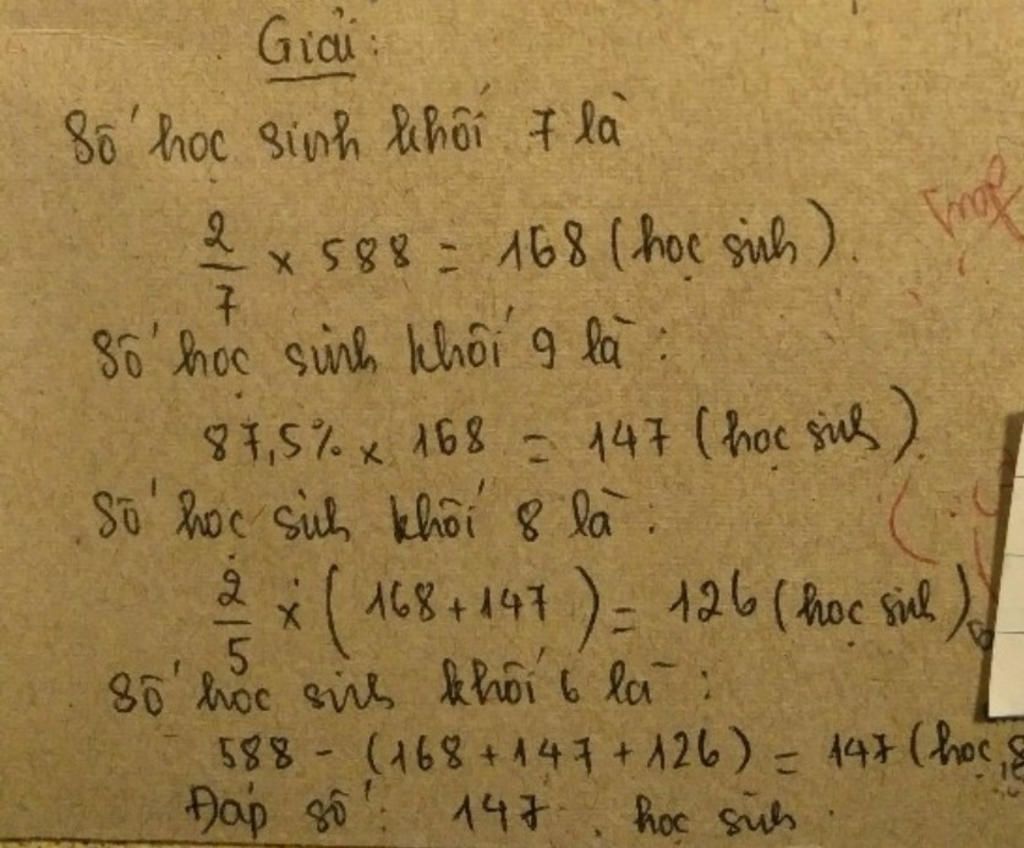 Giải:
Số học sinh khối 7 là
2/7 x 588 = 168 (học sinh).
Số học sinh khối 9 là:
87,5% x 168 = 147 (học sinh).
Số học sinh khối 8 là:
2/5 x (168 + 147) = 126 (học sinh)
Số học sinh khối 6 là:
588 - (168 + 147 + 126) = 147 (học s
Đáp số: 147 học sinh.